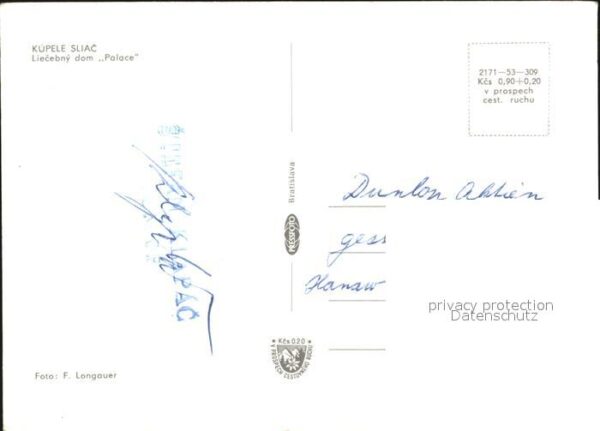 KÚPELE SLIAČ
Liečebný dom „Palace"
2171—53—309
Kčs 0,90+0,20
v prospech
cest. ruchu
Bratislava
PRESSFOTO
Dunlop Aktien
gess
Hanau
privacy protection
Datenschutz
Kčs 0.20
V PROSPECH CESTOVNÉHO RUCHU
Foto: F. Longauer